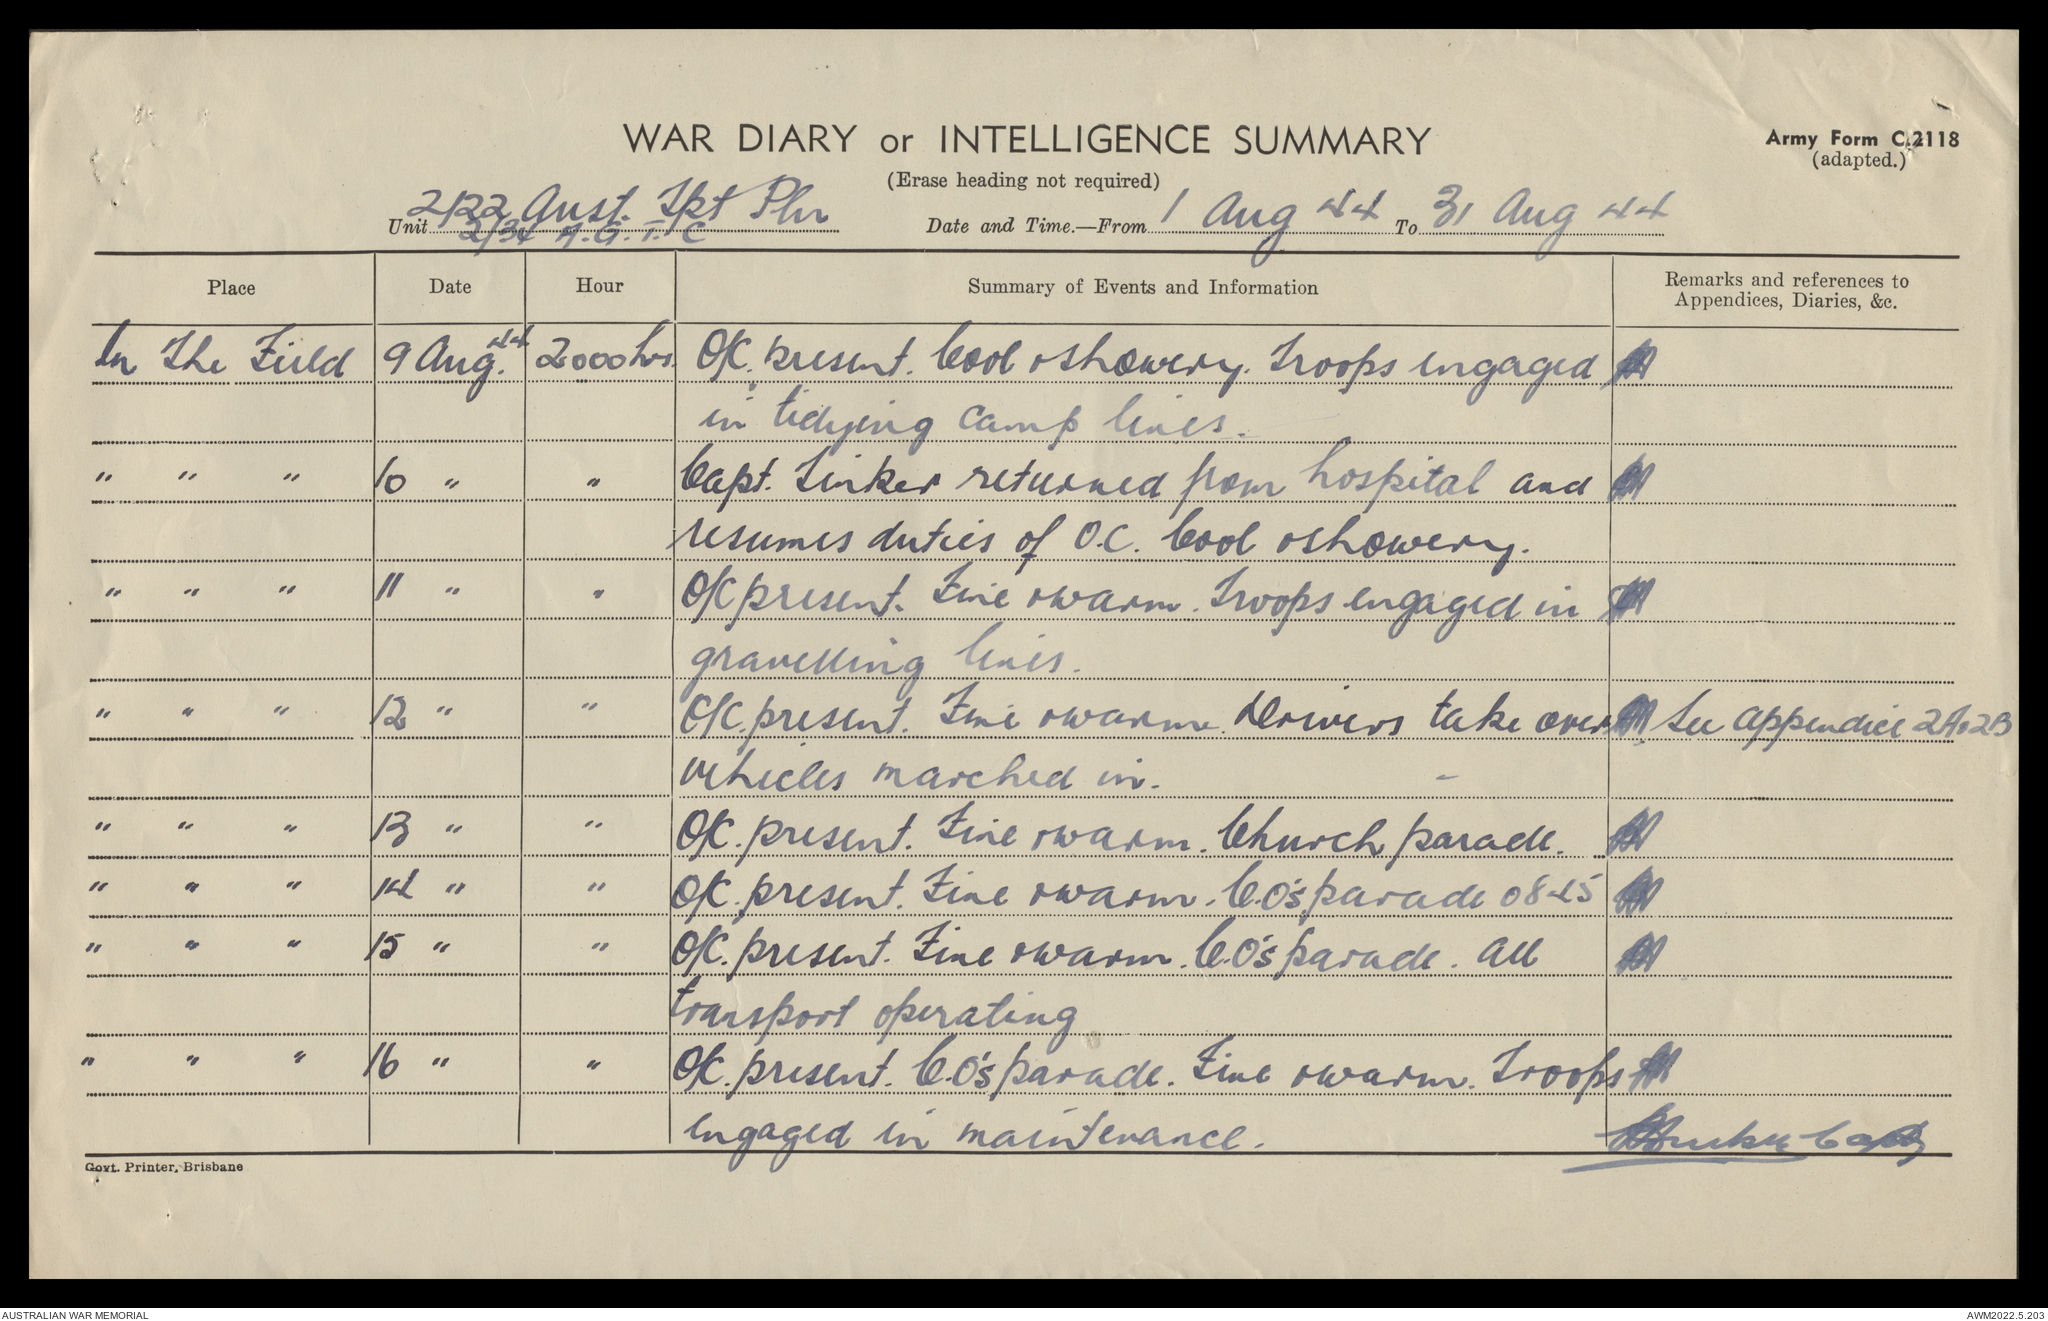 WAR DIARY or INTELLIGENCE SUMMARY
(Erase heading not required)
Army Form C.2118
(adapted.)
Unit 2/22 Aust. Tpt Pln
2/34 A.G.T.C
Date and Time.—From 1 Aug 44 To 31 Aug 44
Place Date Hour Summary of Events and Information Remarks and references to Appendices, Diaries, &c.
In The Field 9 Aug. 44 2000 hrs. O/C. present. Cool & showery. Troops engaged
in tidying camp lines.
" " " 10 " " Capt. Tinker returned from hospital and
resumes duties of O.C. Cool & showery.
" " " 11 " " O/C present. Fine & warm. Troops engaged in
gravelling lines.
" " " 12 " " O/C. present. Fine & warm. Drivers take over See appendice 2A & 2B
vehicles marched in. -
" " " 13 " " O/C. present. Fine & warm. Church parade.
" " " 14 " " O/C. present. Fine & warm. C.O's parade 0845
" " " 15 " " O/C. present. Fine & warm. C.O's parade. All
transport operating
" " " 16 " " O/C. present. C.O's parade. Fine & warm. Troops
engaged in maintenance. Tinker Capt
Govt. Printer, Brisbane
AUSTRALIAN WAR MEMORIAL AWM2022.5.203